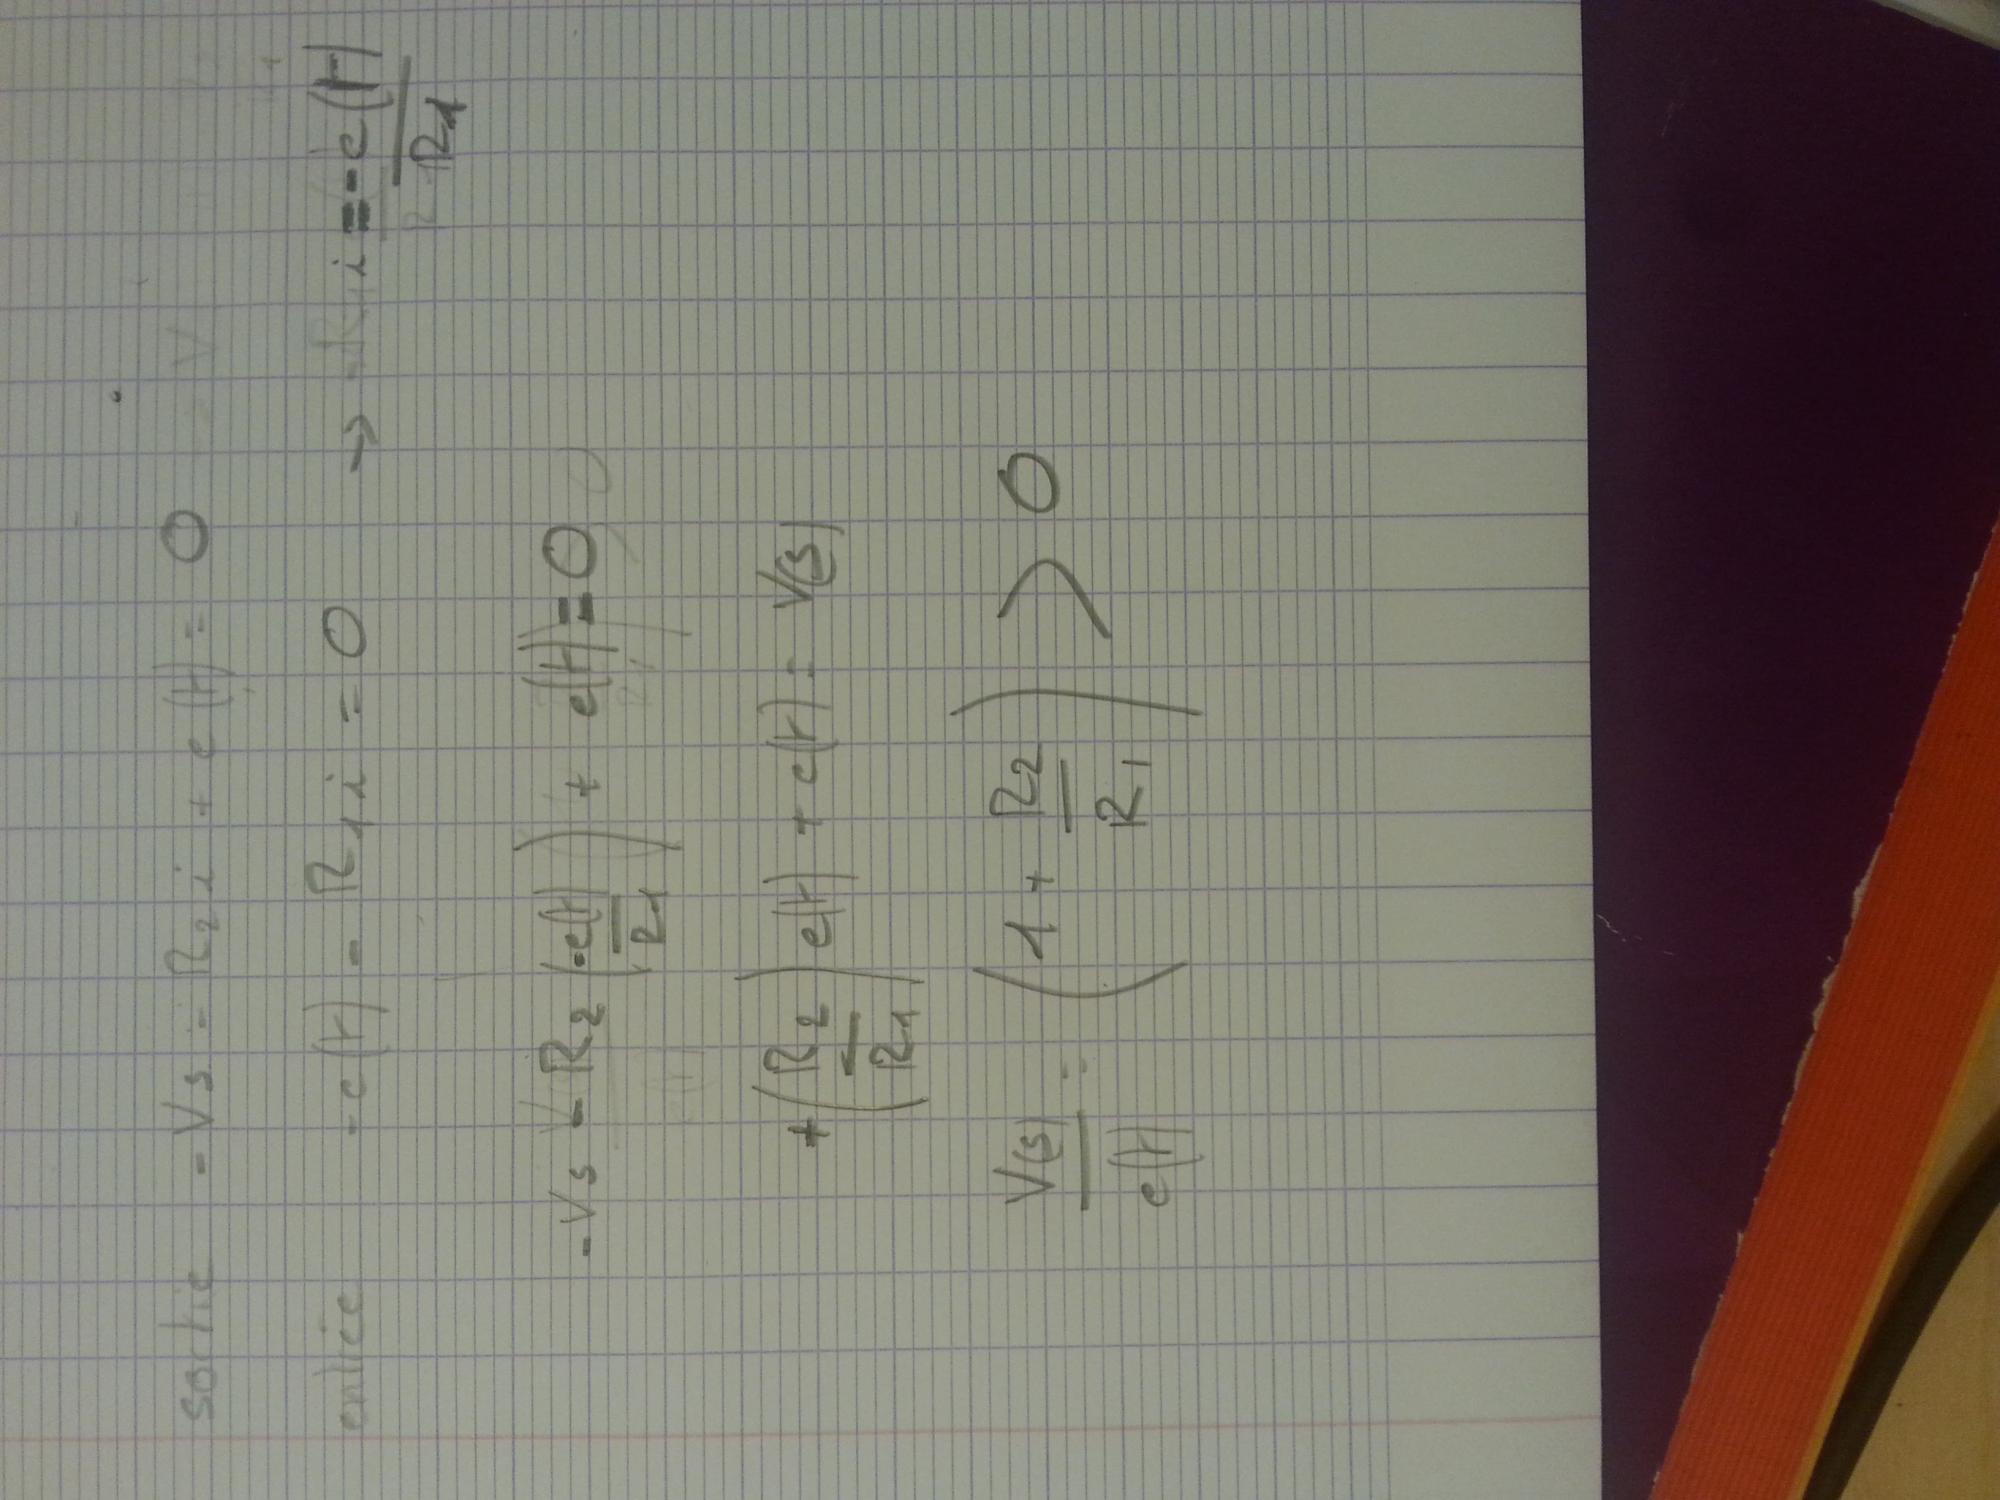 sortie - Vs - R2 i + e(t) = 0
entrée - e(t) - R1 i = 0 → i = - e(t) / R1
- Vs - R2 (- e(t) / R1) + e(t) = 0
+ (R2 / R1) e(t) + e(t) = V(s)
V(s) / e(t) = (1 + R2 / R1) > 0